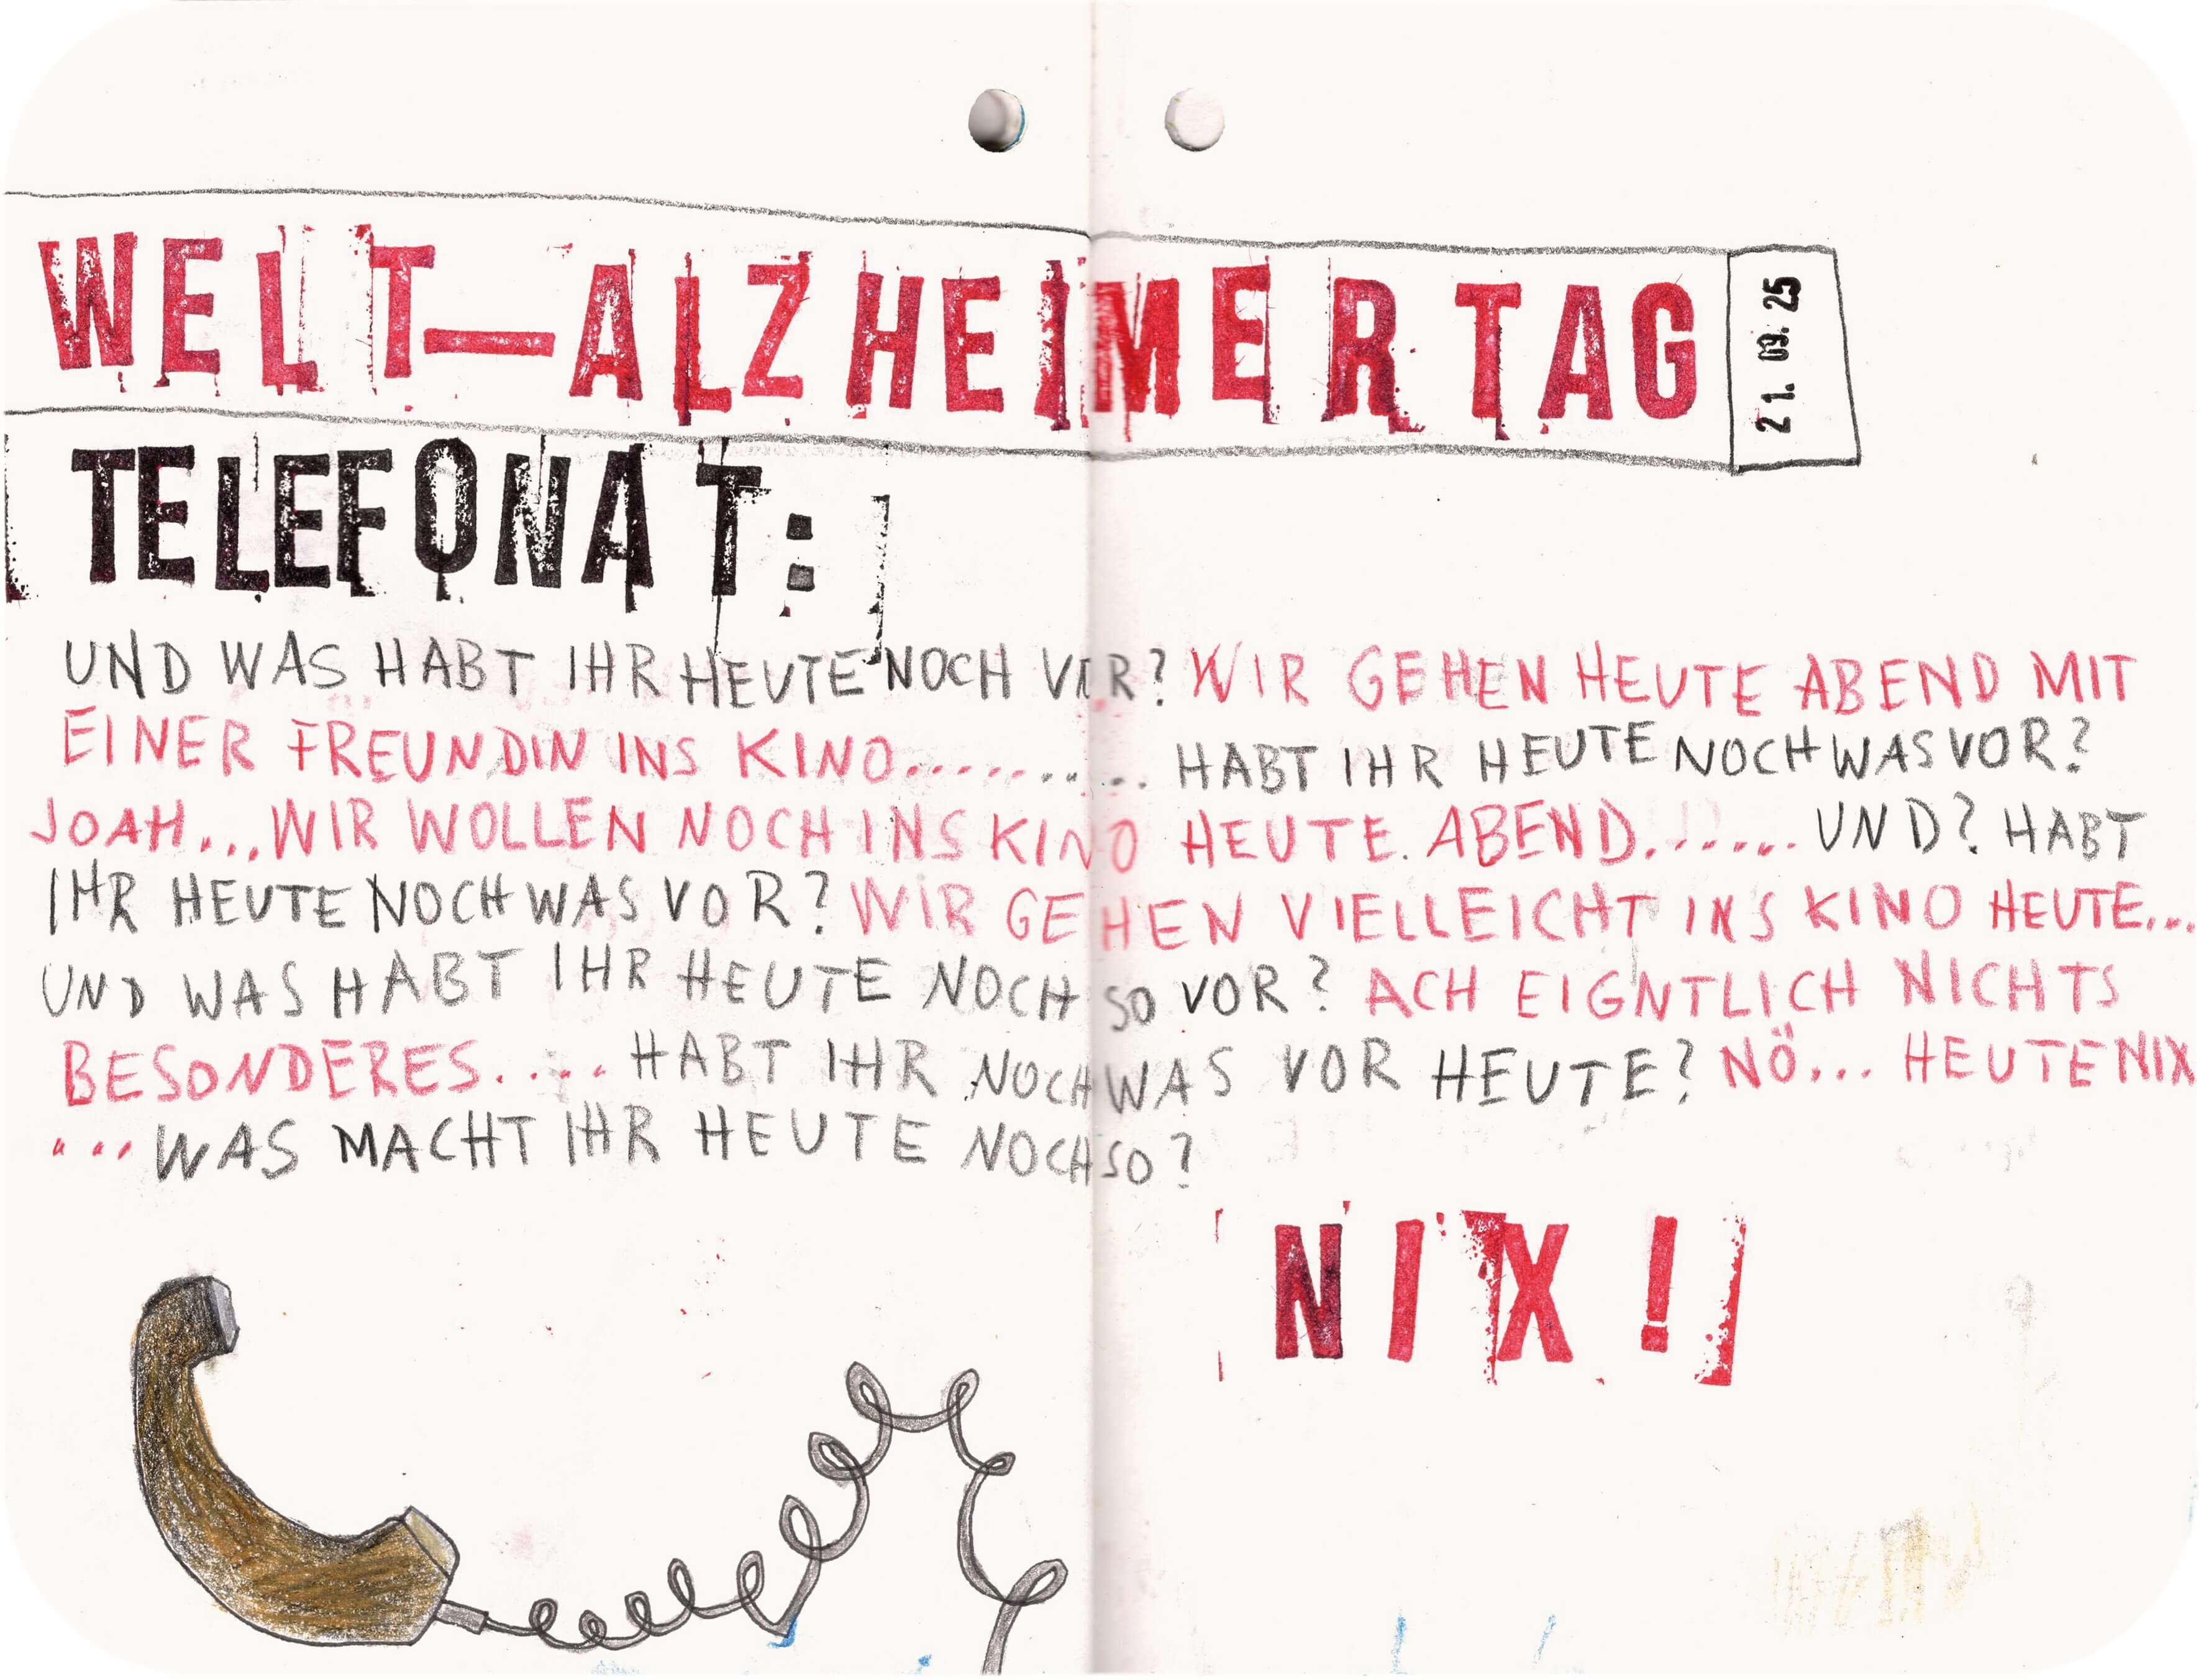 WELT-ALZHEIMERTAG 21. 09. 25
TELEFONAT:
UND WAS HABT IHR HEUTE NOCH VOR? WIR GEHEN HEUTE ABEND MIT
EINER FREUNDIN INS KINO.......... HABT IHR HEUTE NOCH WAS VOR?
JOAH...WIR WOLLEN NOCH INS KINO HEUTE. ABEND....... UND? HABT
IHR HEUTE NOCH WAS VOR? WIR GEHEN VIELLEICHT INS KINO HEUTE...
UND WAS HABT IHR HEUTE NOCH SO VOR? ACH EIGNTLICH NICHTS
BESONDERES.... HABT IHR NOCH WAS VOR HEUTE? NÖ... HEUTE NIX
...WAS MACHT IHR HEUTE NOCH SO?
NIX!